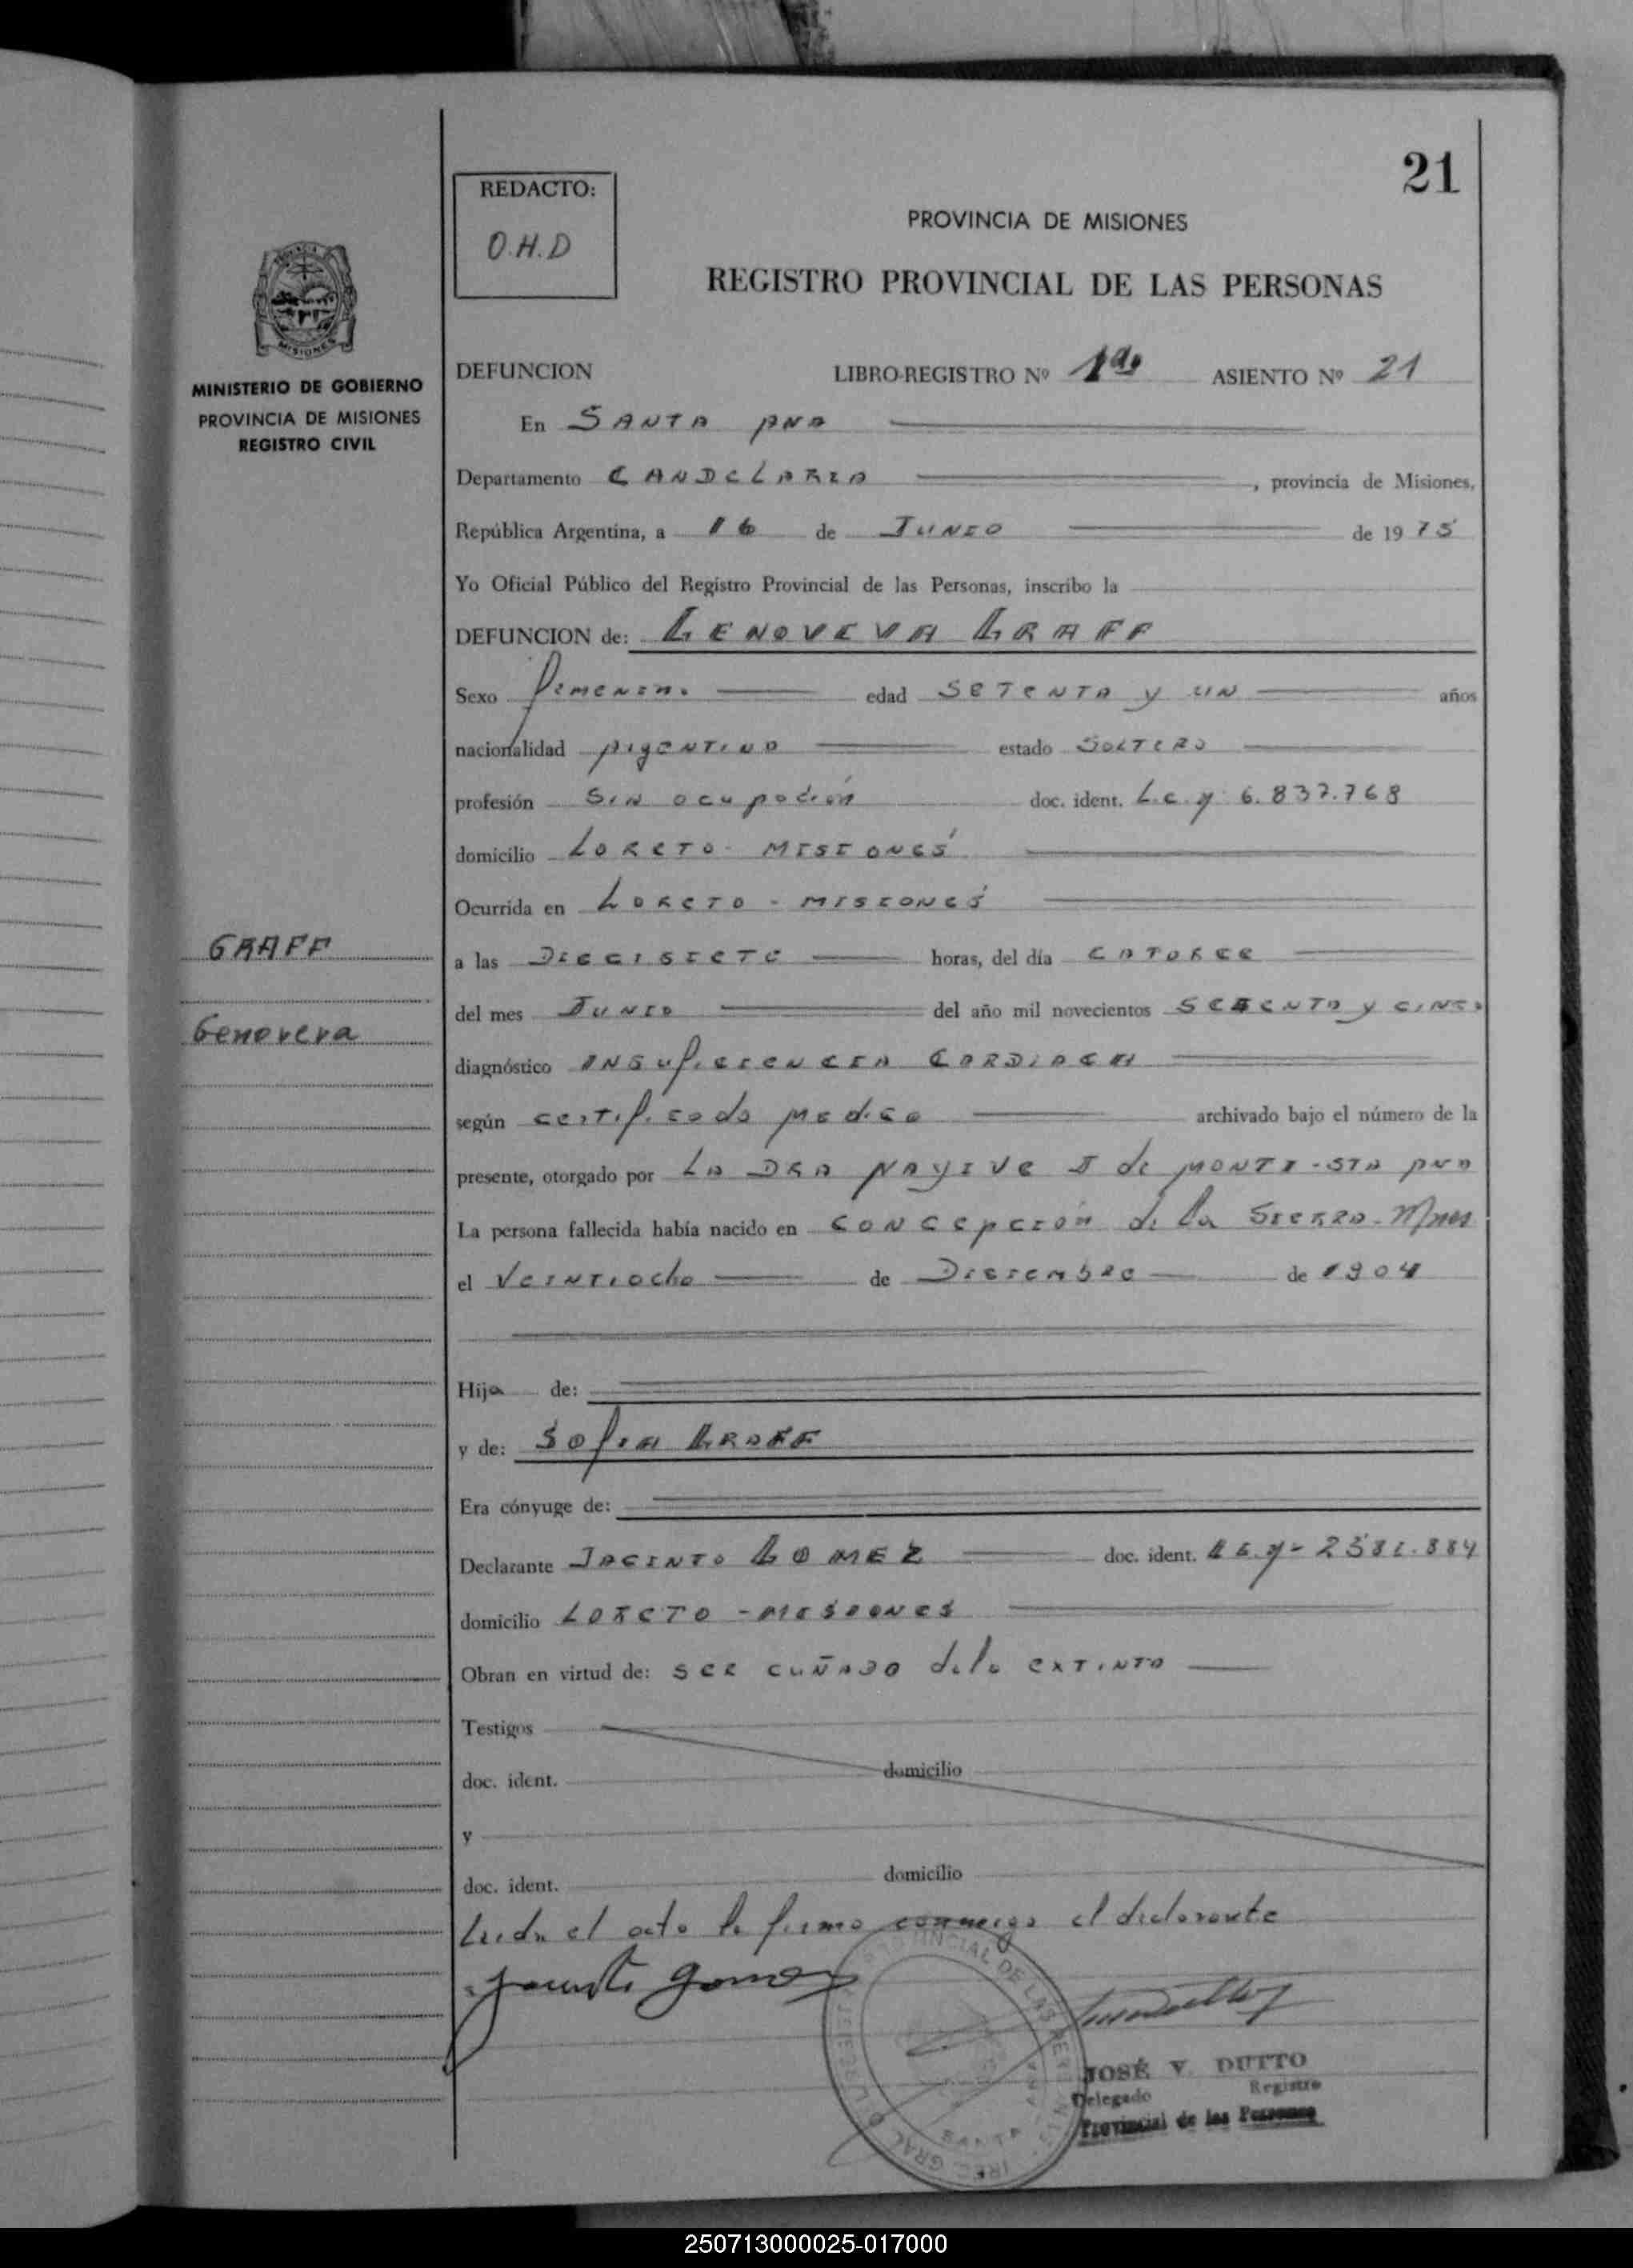 21
REDACTO:
O.H.D
PROVINCIA DE MISIONES
REGISTRO PROVINCIAL DE LAS PERSONAS
MISIONES
MINISTERIO DE GOBIERNO
PROVINCIA DE MISIONES
REGISTRO CIVIL
DEFUNCION LIBRO-REGISTRO Nº 1º ASIENTO Nº 21
En SANTA ANA
Departamento CANDELARIA, provincia de Misiones,
República Argentina, a 16 de JUNIO de 1975
Yo Oficial Público del Registro Provincial de las Personas, inscribo la
DEFUNCION de: GENOVEVA GRAFF
Sexo femenin. edad SETENTA y UN años
nacionalidad ArgENTINA estado SOLTERA
profesión Sin ocupación doc. ident. L.C. Nº 6.837.768
domicilio LORETO - MISIONES
Ocurrida en LORETO - MISIONES
GRAFF
a las DIECISIETE horas, del día CATORCE
del mes JUNIO del año mil novecientos SETENTA y CINCO
Genoveva
diagnóstico INSuficiENCIA CARDIACA
según certificado medico archivado bajo el número de la
presente, otorgado por LA DRA NAYIVE J de MONTI - STA ANA
La persona fallecida había nacido en CONCEPCIÓN de la SIERRA - Mnes
el VEINTIocho de DICIEMBRE de 1904
Hija de:
y de: SOfIA GRAFF
Era cónyuge de:
Declarante JACINTO GOMEZ doc. ident. 2581.884
domicilio LORETO - MISIONES
Obran en virtud de: SER CUÑADO de la EXTINTA
Testigos
doc. ident. domicilio
y
doc. ident. domicilio
Leida el acta la firma conmigo el declarante
Jacinto Gomez
JOSÉ V. DUTTO
Delegado Registro
Provincial de las Personas
250713000025-017000